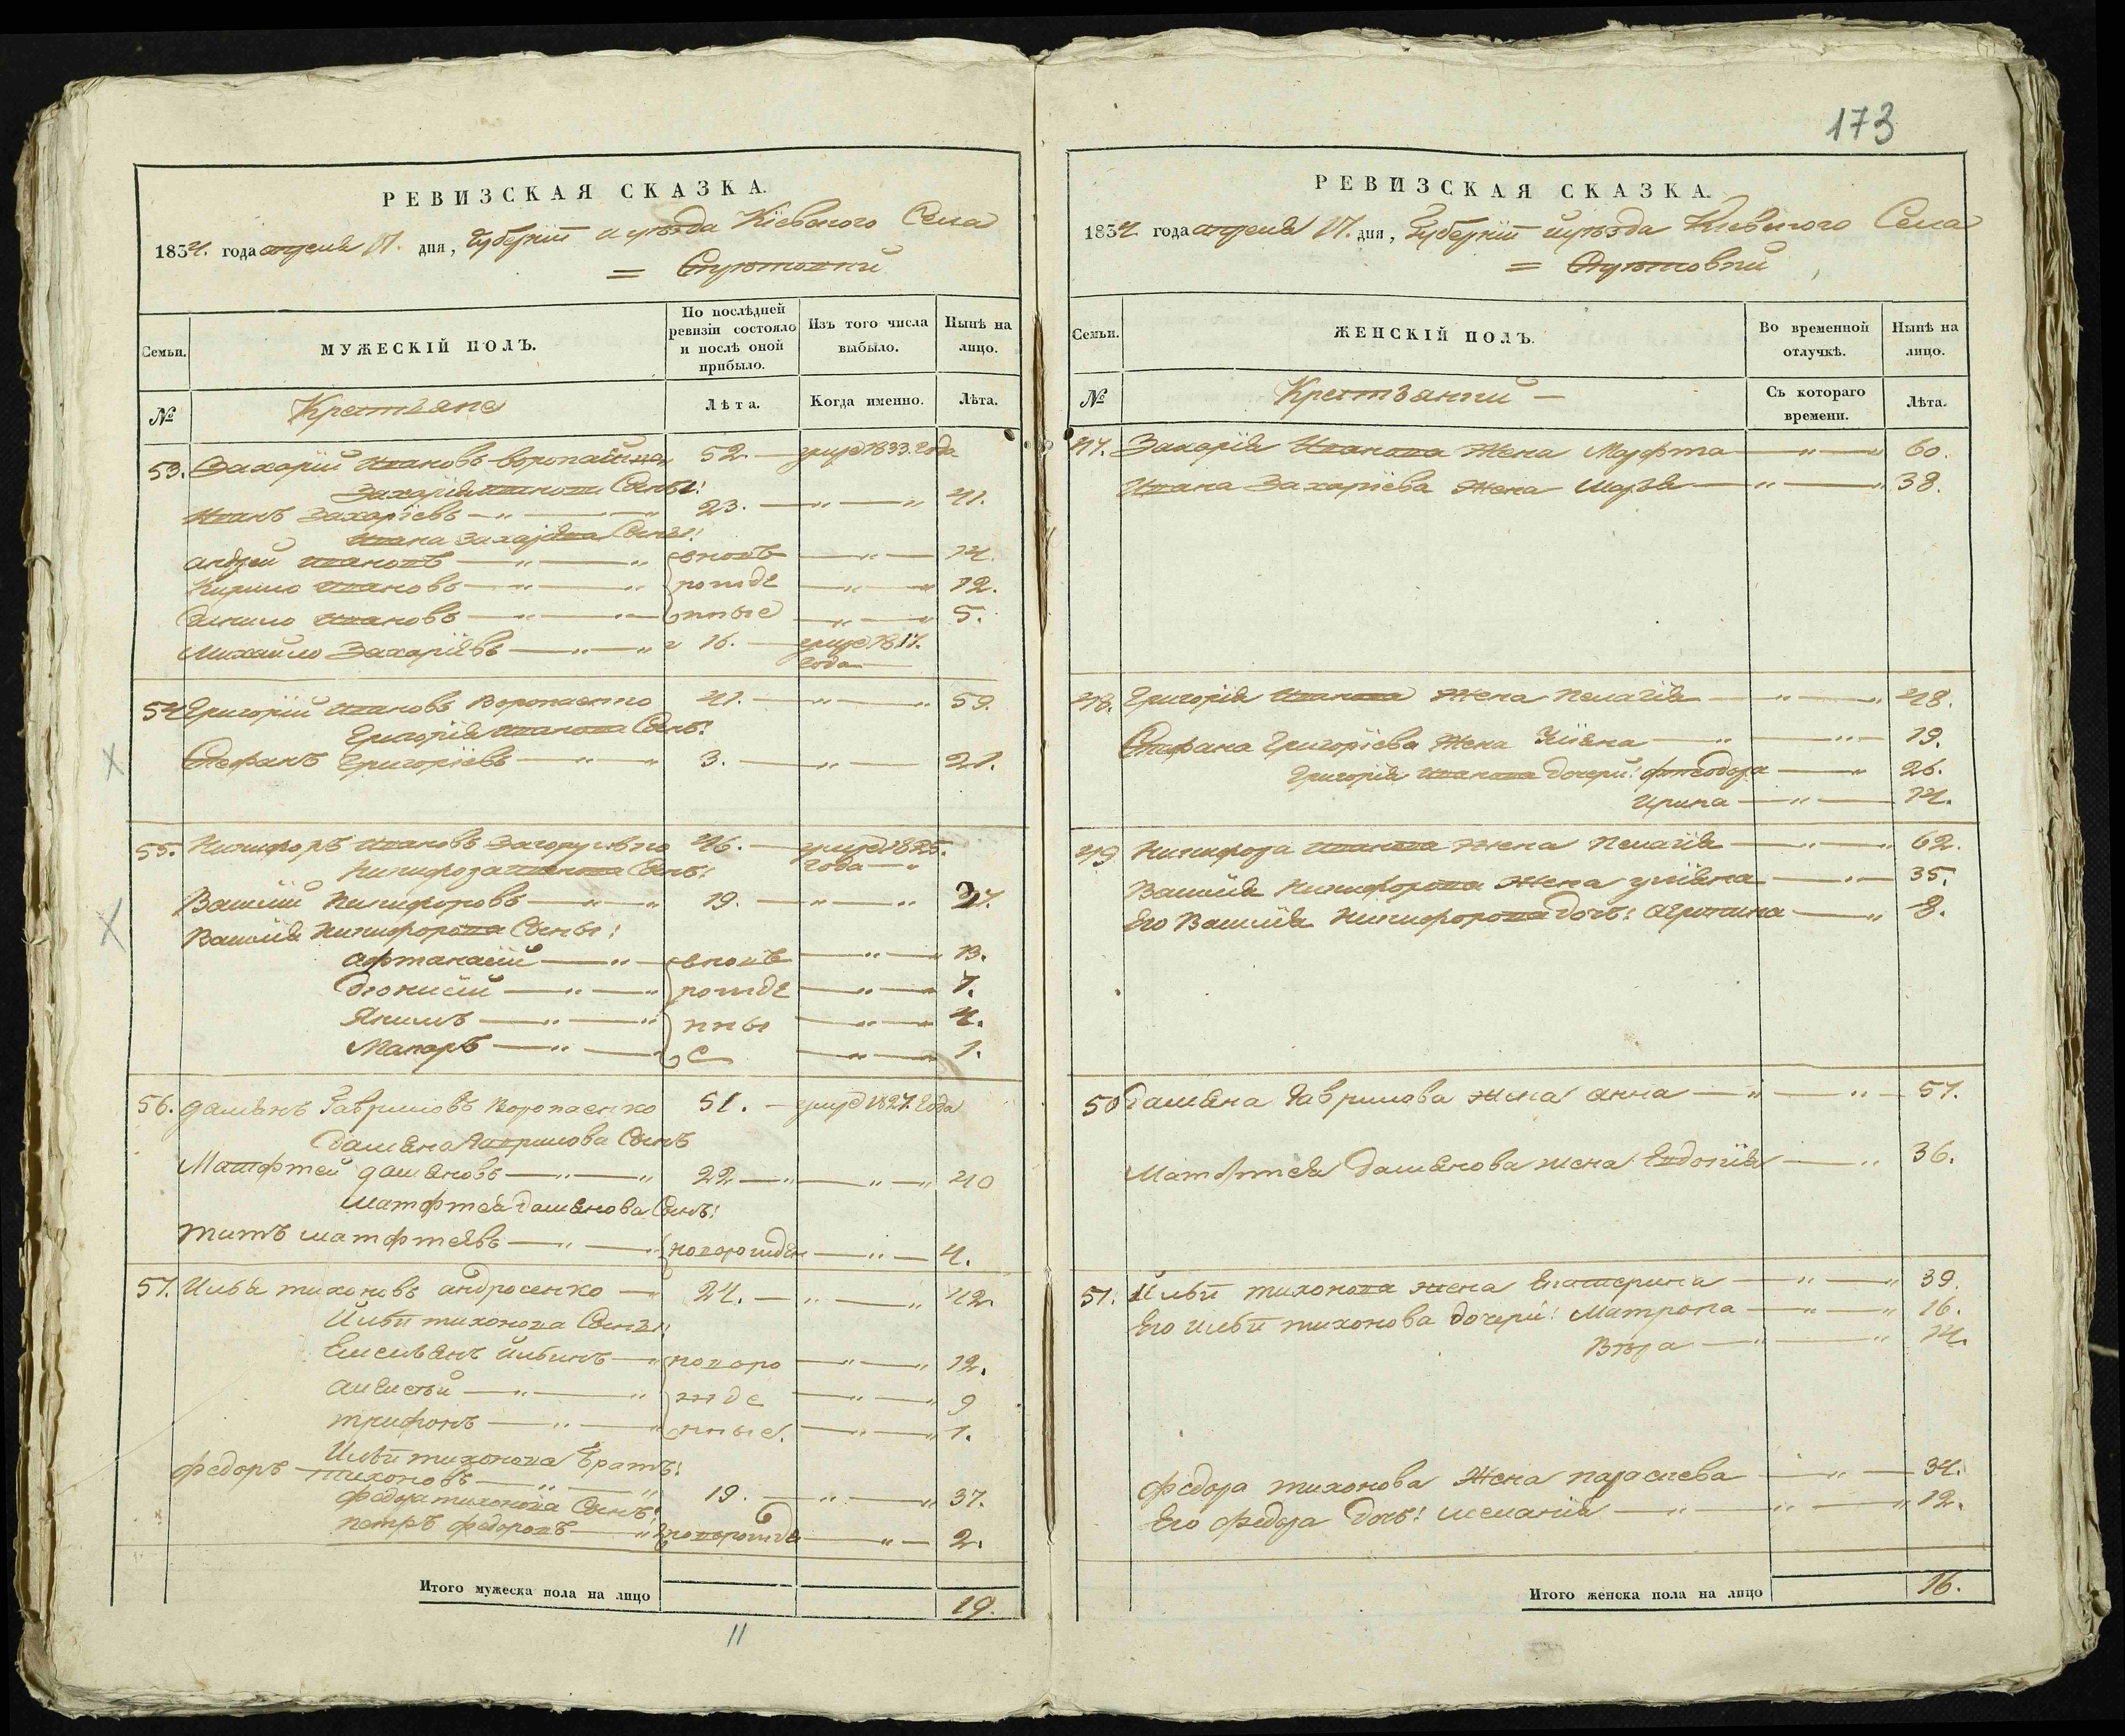 РЕВИЗСКАЯ СКАЗКА.
1834. года апреля 17. дня, Губерніи и уезда Кіевского Села
=
Семьи.
МУЖЕСКІЙ ПОЛЪ.
По послѣдней ревизіи состояло и послѣ оной прибыло.
Изъ того числа выбыло.
Нынѣ на лицо.
№
Крестьяне
Лѣта.
Когда именно.
Лѣта.
53. Захарій Ивановъ 52. — умре 1833. года
Захарія Иванова Сыны:
Иванъ Захаріевъ — " — " 23. — " — " 41.
Ивана Захаріева Сыны:
андрей Ивановъ — " — " вновь — " — 14.
Кирило Ивановъ — " — " рожде — " — " 12.
Данило Ивановъ — " — " нные — " — " 5.
Михайло Захаріевъ — " — " 16. — умре 1817.
года —
54 Григорій Ивановъ Воропаенко 41. — " — " 59.
Григорія Иванова Сынъ:
Стефанъ Григоріевъ — " — " 3. — " — 21.
55. Никифоръ Ивановъ 46. — умре 1825.
Никифора Иванова Сынъ: года — "
Василій Никифоровъ — " — " 19. — " — " 37.
Василія Никифорова Сыны:
афтанасій — " — вновь — " — " 13.
Діонисій — " — " рожде — " — " 7.
Якимъ — " — " нны — " — " 4.
Макаръ — " — е — " — " 1.
56. Дамянъ Гавриловъ Воропаенко 51. — умре 1827. года
Дамяна Гаврилова Сынъ
Матфтей Дамяновъ — " — " 22 — " — " — " 40
Матфтея Дамянова Сынъ:
Титъ матфтеевъ — " — новорожден — " — 4.
57. Илья тихоновъ андросенко — " 24. — " — " 42.
Ильи тихонова Сыны:
Емельянъ ильинъ — " новоро — " — " 12.
алексѣй — " — " жде — " — " 9
трифонъ — " — " нные. — " — " 1.
Ильи тихонова братъ:
федоръ тихоновъ — " — " 19. — " — " 37.
федора тихонова Сынъ:
петръ федоровъ — " новорожде — " — 2.
Итого мужеска пола на лицо 19.
11
173
РЕВИЗСКАЯ СКАЗКА.
1834 года апреля 17. дня, Губерніи и уезда Кіевского Села
=
Семьи.
ЖЕНСКІЙ ПОЛЪ.
Во временной отлучкѣ.
Нынѣ на лицо.
№
Крестьянки —
Съ котораго времени.
Лѣта.
47. Захарія Иванова Жена Марфта — " — " 60.
Ивана Захаріева Жена Марья — " — " 38.
48. Григорія Иванова Жена Пелагія — " — " 48.
Стефана Григоріева Жена Уліяна — " — " — 19.
Григорія Иванова дочери: фтеодора — " 26.
Ирина — " — 14.
49 Никифора Иванова Жена Пелагія — " — " 62.
Василія Никифорова Жена уліяна — " — 35.
Его Василія Никифорова дочь: агрипина — " 8.
50 Дамяна Гаврилова жена анна — " — " — 57.
Матфтея Дамянова жена Евдокія — " 36.
51. Ильи тихонова жена Екатерина — " — " 39.
Его ильи тихонова дочери: Матрона — " — " 16.
Вѣра — " — " 14.
федора тихонова Жена параскева — " — 34.
Его федора дочь: меланія — " — " — " 12.
Итого женска пола на лицо 16.